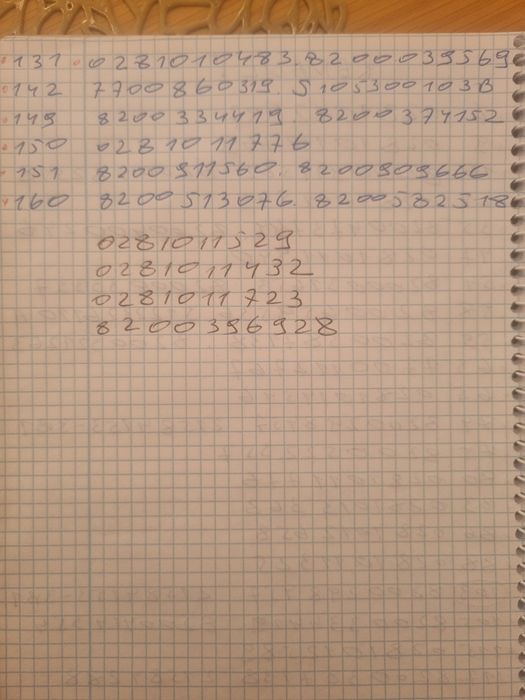 131 0281010483. 8200039569
142 7700860319 5105300103B
149 8200334419. 8200374152
150 0281011776
151 8200911560. 8200909666
160 8200513076. 8200582518
0281011529
0281011432
0281011723
8200396928